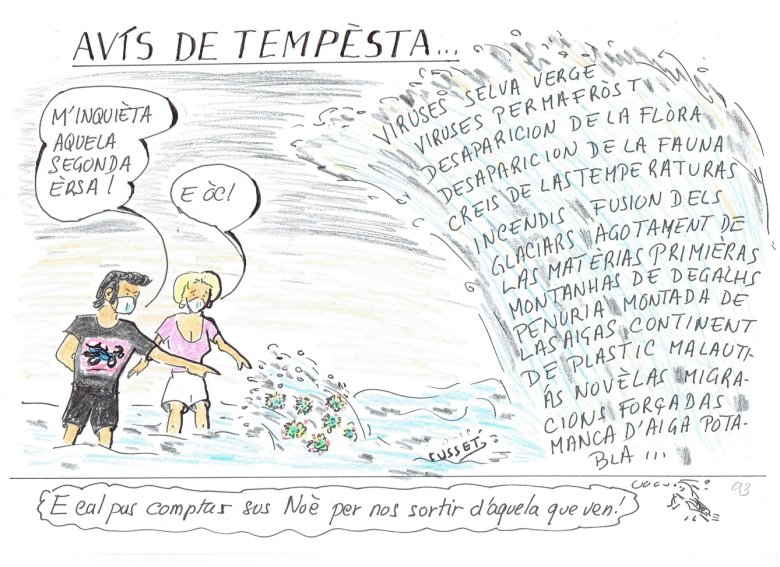 AVÍS DE TEMPÈSTA...
M'INQUIÈTA
AQUELA
SEGONDA
ÈRSA !
E ÒC!
VIRUSES SELVA VERGE
VIRUSES PERMAFRÒST
DESAPARICION DE LA FLÒRA
DESAPARICION DE LA FAUNA
CREIS DE LAS TEMPERATURAS
INCENDIS FUSION DELS
GLACIARS AGOTAMENT DE
LAS MATÈRIAS PRIMIÈRAS
MONTANHAS DE DEGALHS
PENURIA MONTADA DE
LAS AIGAS CONTINENT
DE PLASTIC MALAUTI-
ÁS NOVÈLAS MIGRA-
CIONS FORÇADAS
MANCA D'AIGA POTA-
BLA ...
CUSSET
E cal pas comptar sus Noè per nos sortir d'aquela que ven!
93